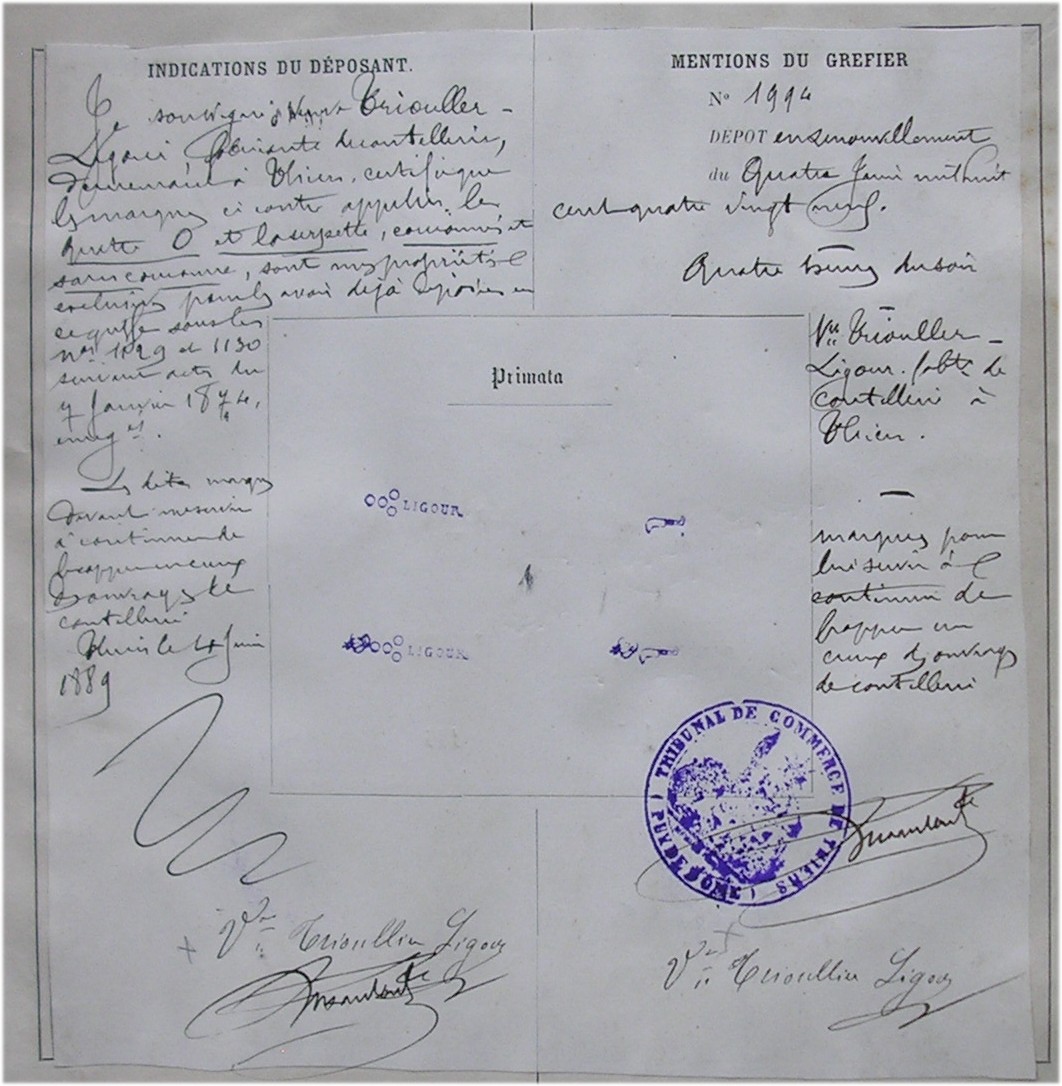 INDICATIONS DU DÉPOSANT.
Je soussignée Veuve Triouller-
Ligour, fabricante de coutellerie,
demeurant à Thiers, certifie que
les marques ci contre appelées les
quatre O et la serpette, couronnés et
sans couronne, sont mes propriétés
exclusives pour les avoir déjà déposées en
ce greffe sous les
nos 1129 et 1130
suivant actes du
7 Janvier 1874,
enreg es.
Les dites marques
devant me servir
à continuer de
frapper en creux
des ouvrages de
coutellerie
Thiers le 4 Juin
1889
Vve Trioullier Ligour
MENTIONS DU GREFIER
No 1994
DÉPOT en renouvellement
du Quatre Juin mil huit
cent quatre vingt neuf.
Quatre heures du soir
Primata
LIGOUR
LIGOUR
Vve Triouller-
Ligour. fabte de
coutellerie à
Thiers.
marques pour
lui servir à
continuer de
frapper en
creux des ouvrages
de coutellerie
TRIBUNAL DE COMMERCE DE THIERS
(PUY DE DOME)
Vve Trioullier Ligour